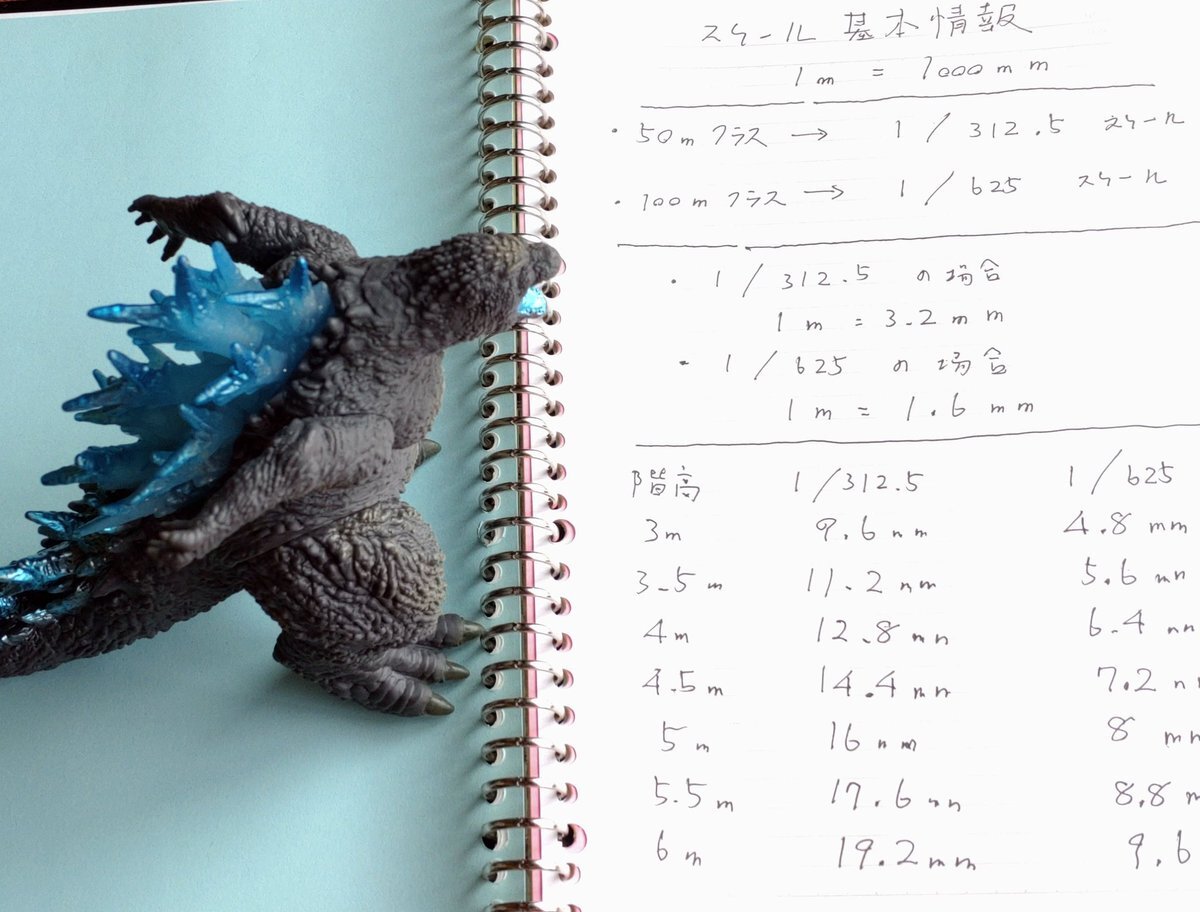 スケール 基本情報
1m = 1000mm
・50mクラス → 1/312.5 スケール
・100mクラス → 1/625 スケール
・1/312.5 の場合
1m = 3.2mm
・1/625 の場合
1m = 1.6mm
階高 1/312.5 1/625
3m 9.6mm 4.8mm
3.5m 11.2mm 5.6mm
4m 12.8mm 6.4mm
4.5m 14.4mm 7.2m
5m 16mm 8mm
5.5m 17.6mm 8.8m
6m 19.2mm 9.6